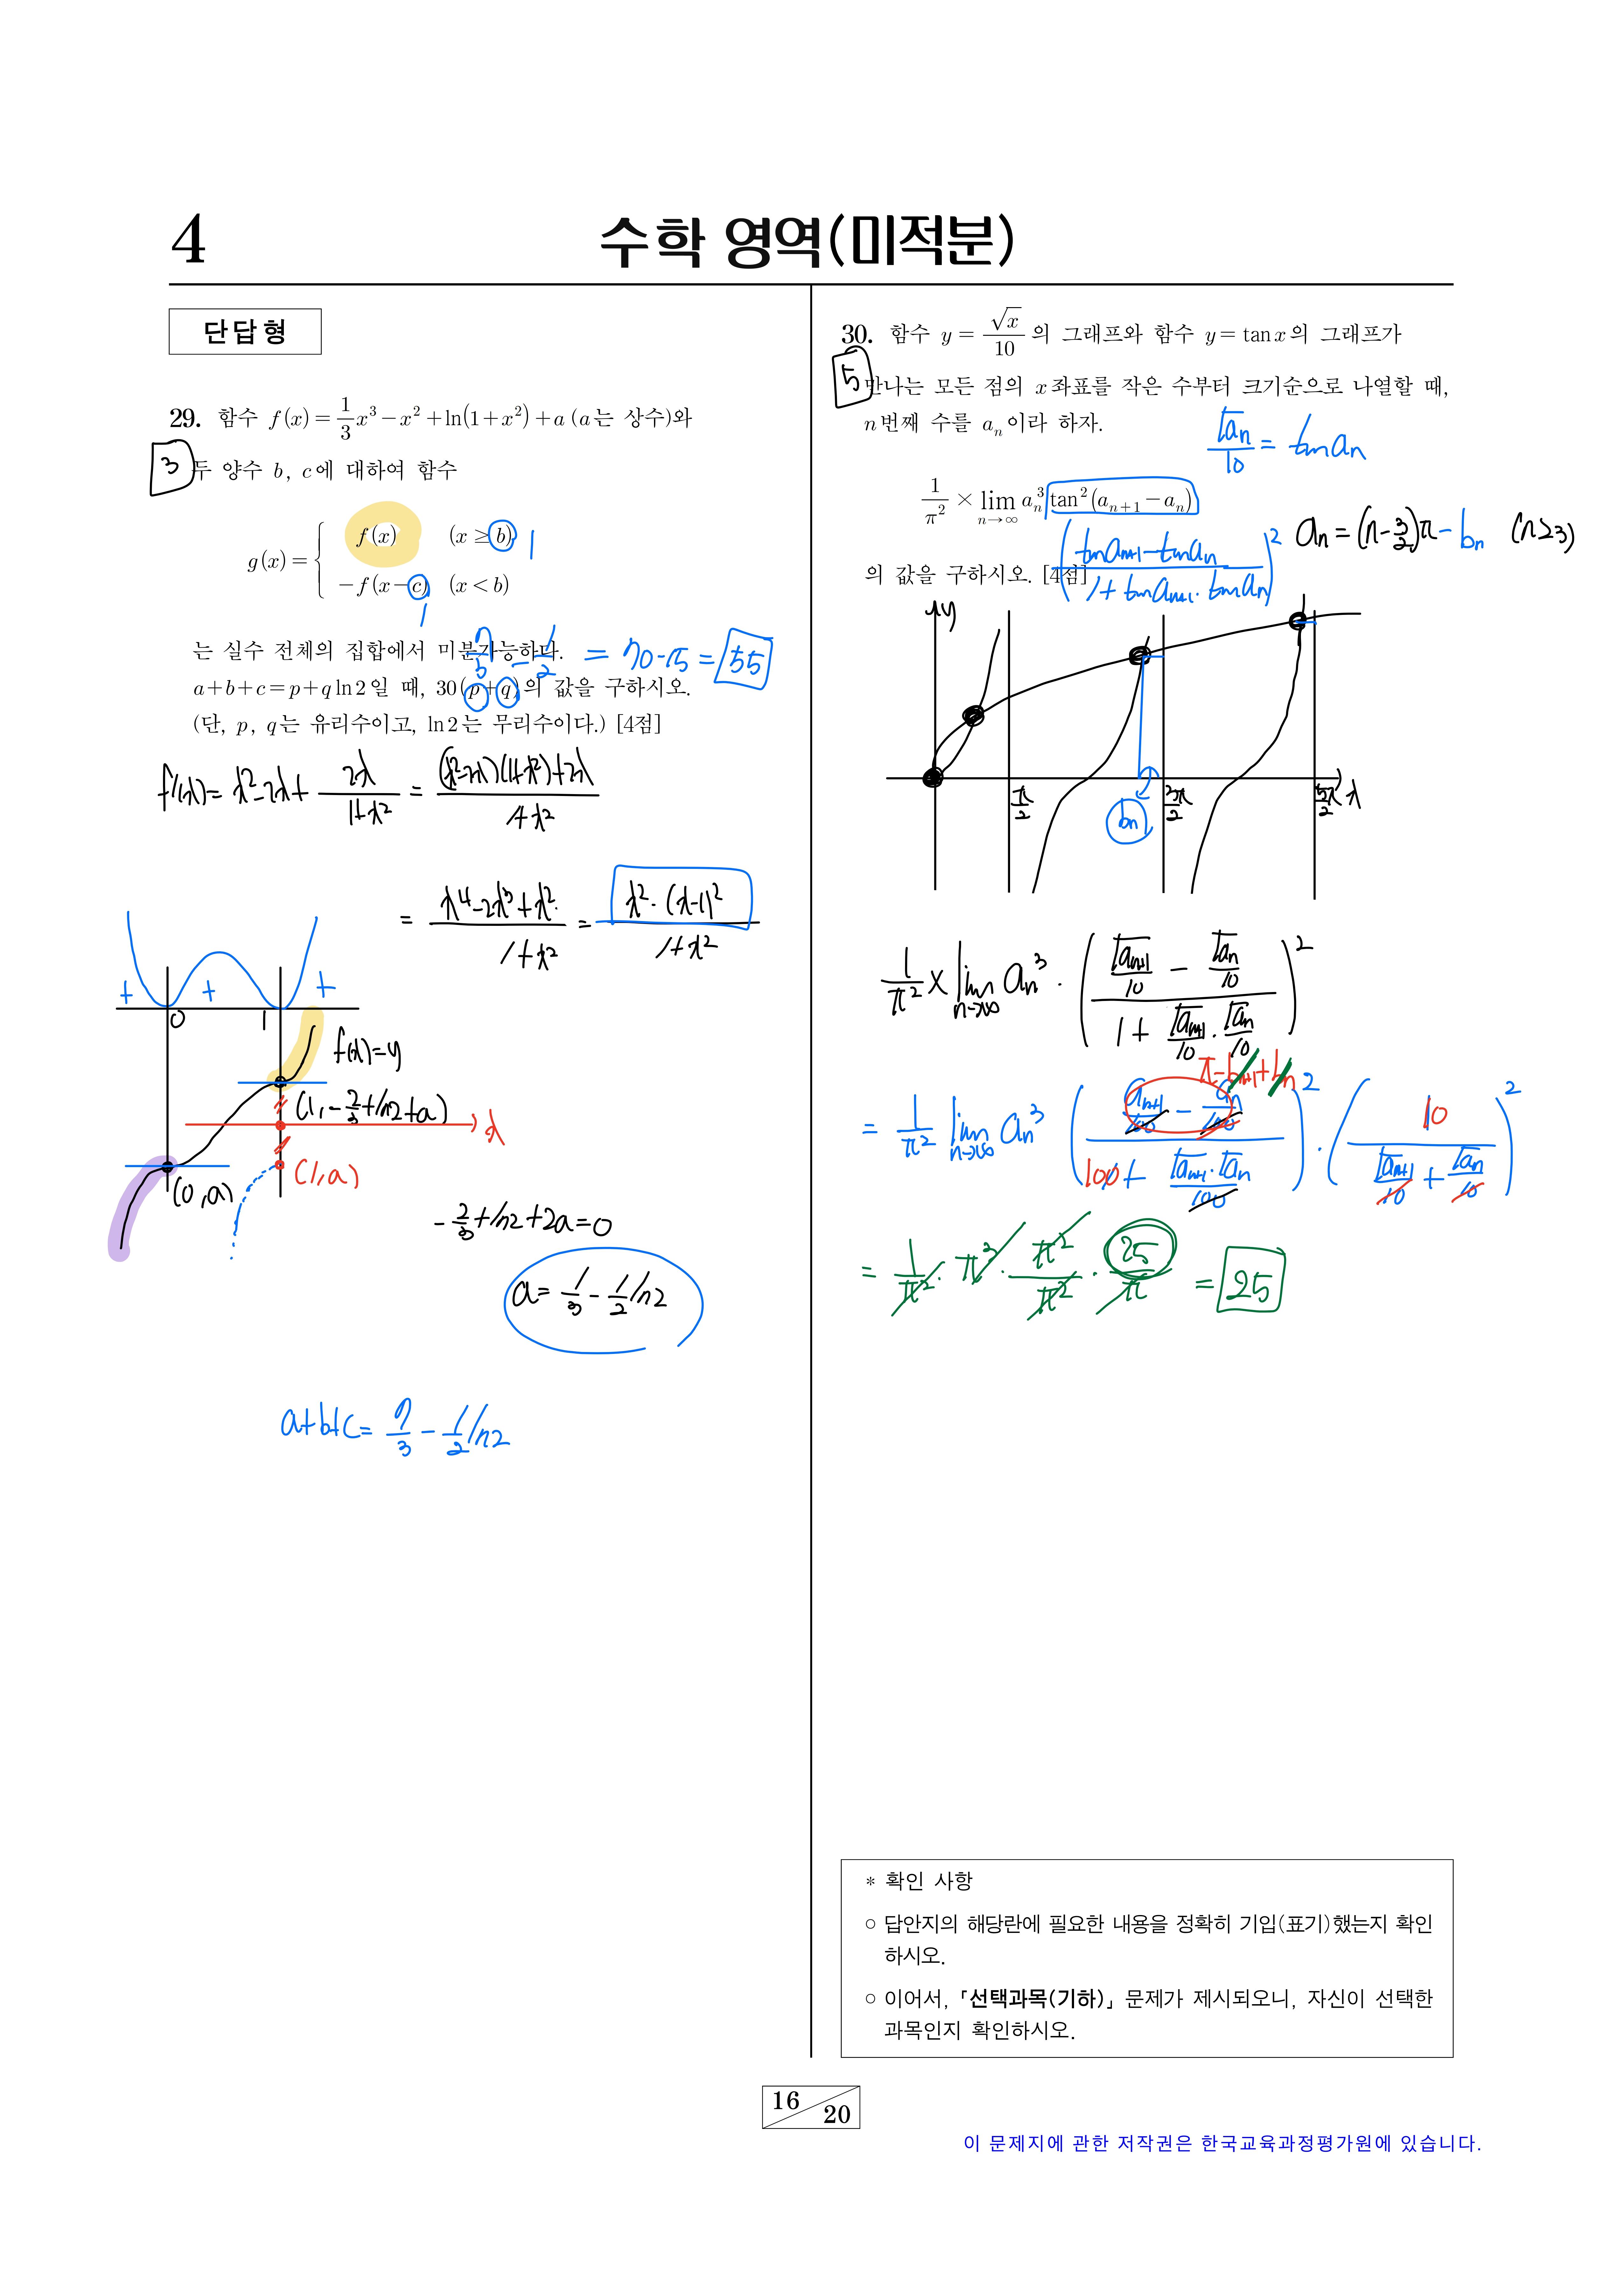 4
수학 영역(미적분)
단답형
29. 함수 f(x) = 1/3 x³ − x² + ln(1+x²) + a (a는 상수)와
3
두 양수 b, c에 대하여 함수
g(x) = { f(x) (x ≥ b) 1
−f(x−c) (x < b)
1
는 실수 전체의 집합에서 미분가능하다.
a+b+c = p+q ln2일 때, 30(p+q)의 값을 구하시오.
(단, p, q는 유리수이고, ln2는 무리수이다.) [4점]
7/3 − 1/2 = 70−15 = 55
f'(x) = x²−2x+ 2x/(1+x²) = ((x²−2x)(1+x²)+2x)/(1+x²)
= (x⁴−2x³+x²)/(1+x²) = (x²·(x−1)²)/(1+x²)
+ + +
0 1
f(x)=y
(1, −2/3+ln2+a)
x
(1, a)
(0, a)
−2/3+ln2+2a=0
a = 1/3 − 1/2 ln2
a+b+c = 7/3 − 1/2 ln2
30. 함수 y = √x/10 의 그래프와 함수 y = tan x의 그래프가
5
만나는 모든 점의 x좌표를 작은 수부터 크기순으로 나열할 때,
n번째 수를 aₙ이라 하자.
√aₙ/10 = tan aₙ
1/π² × lim n→∞ aₙ³ tan²(aₙ₊₁ − aₙ)
aₙ = (n−3/2)π − bₙ (n≥3)
((tan aₙ₊₁ − tan aₙ)/(1+tan aₙ₊₁·tan aₙ))²
의 값을 구하시오. [4점]
y
π/2 3π/2 5π/2 x
bₙ
1/π² × lim n→∞ aₙ³ · ((√aₙ₊₁/10 − √aₙ/10)/(1 + √aₙ₊₁/10 · √aₙ/10))²
π−bₙ₊₁+bₙ
= 1/π² lim n→∞ aₙ³ ((aₙ₊₁/100 − aₙ/100)/(100+ √aₙ₊₁·√aₙ/100))² · (10/(√aₙ₊₁/10 + √aₙ/10))²
= 1/π² · π² · π²/π² · 25/π = 25
* 확인 사항
○ 답안지의 해당란에 필요한 내용을 정확히 기입(표기)했는지 확인
하시오.
○ 이어서, 「선택과목(기하)」 문제가 제시되오니, 자신이 선택한
과목인지 확인하시오.
16
20
이 문제지에 관한 저작권은 한국교육과정평가원에 있습니다.